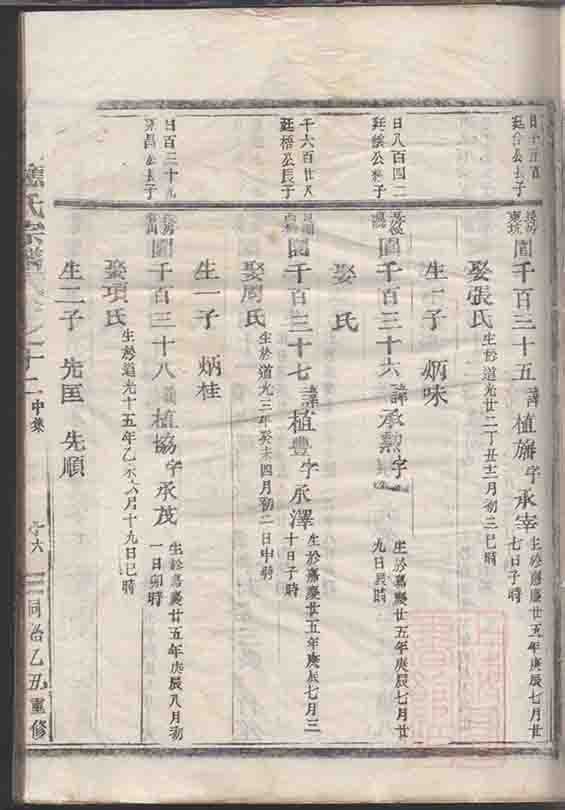 廷公長子
長房東坑
圍千百三十五 諱植旂字承宰 生於嘉慶廿五年庚辰七月廿七日子時
娶張氏 生於道光廿二丁丑十二月初三巳時
生一子 炳味
日八百四二
廷公子
圍千百三十六 諱承勲字 生於嘉慶廿五年庚辰七月廿九日辰時
娶 氏
千六百廿八
廷梧公長子
圍千百三十七 諱植豐字承澤 生於嘉慶廿五年庚辰七月三十日子時
娶周氏 生於道光三年癸未四月初二日申時
生一子 炳桂
日百二十九
昌公長子
圍千百三十八 諱植協字承茂 生於嘉慶廿五年庚辰八月初一日卯時
娶項氏 生於道光十五年乙未六月十九日巳時
生二子 先匡 先順
氏宗譜 十二 中集 六 同治乙丑重修